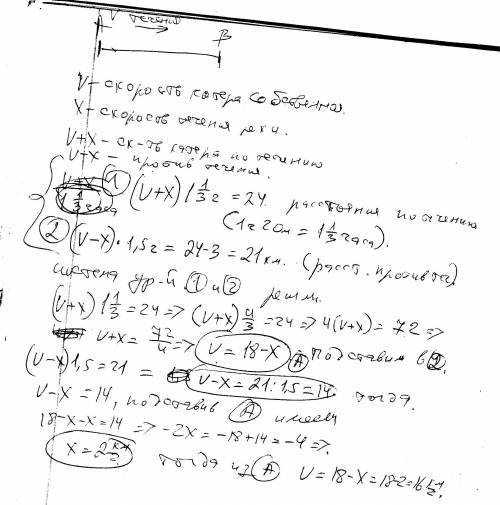 V течения
B
V – скорость катера собственная.
X – скорость течения реки.
V+X – ск-ть катера по течению
V-X – против течения.
① (V+X) 1 1/3 ч = 24. расстояние по течению
1 1/3 часа (1ч 20м = 1 1/3 часа).
② (V-X)·1,5ч = 24-3 = 21 км. (расст. против теч)
система ур-й ① и ② решим.
(V+X) 1 1/3 = 24 => (V+X) 4/3 = 24 => 4(V+X) = 72 =>
V+X = 72/4 => V = 18-X Ⓐ Подставим в ②.
(V-X) 1,5 = 21 = V-X = 21:1,5 = 14. тогда.
V-X = 14, подставив Ⓐ имеем
18-X-X = 14 => -2X = -18+14 = -4 =>.
X = 2 км/ч. тогда из Ⓐ V = 18-X = 18-2 = 16 км/ч.